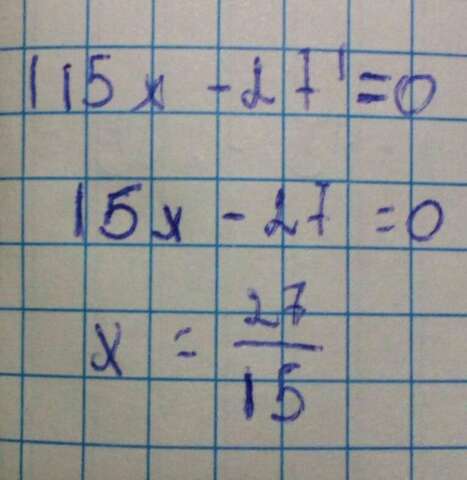 |15x - 27| = 0
15x - 27 = 0
x = 27/15